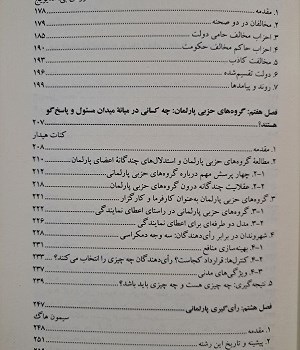 ۱. مقدمه ۱۷۸
۲. مخالفان در دو صحنه ۱۷۹
۳. احزاب مخالف حامی دولت ۱۸۵
۴. احزاب حاکم مخالف حکومت ۱۹۰
۵. مخالفت کاذب ۱۹۳
۶. دولت تقسیم‌شده ۱۹۶
۷. روند و پیامدها ۱۹۹
فصل هفتم: گروه‌های حزبی پارلمان: چه کسانی در میانهٔ میدان مسئول و پاسخ‌گو
هستند؟ ۲۰۷
کنات هیدار
۱. مقدمه ۲۰۸
۲. مطالعهٔ گروه‌های حزبی پارلمان و استدلال‌های چندگانهٔ اعضای پارلمان ۲۱۰
۲-۱. چهار پرسش مهم درباره گروه‌های حزبی پارلمان ۲۱۱
۲-۲. عقلانیت چندگانه درون گروه‌های حزبی پارلمانی ۲۱۲
۳. گروه‌های حزبی پارلمان به‌عنوان کارفرما و کارگزار
۳-۱. گروه‌های حزبی پارلمان در راستای اعطای نمایندگی
۳-۲. مدل دو طرفه‌ای برای اعطای نمایندگی
۴. شهروندان در برابر رأی‌دهندگان: سه وجه دمکراسی
۴-۱. بهینه‌سازی منافع ۲۳۱
۴-۲. کنترل‌ها: قرارداد کجاست؟ رأی‌دهندگان چه چیزی را انتخاب می‌کنند؟ ۲۳۳
۴-۳. ویژگی‌های مدنی ۲۳۷
۵. نتیجه‌گیری: چه چیزی هست و چه چیزی باید باشد؟ ۲۳۹
فصل هشتم: رأی‌گیری پارلمانی ۲۴۷
سیمون هاگ
۱. مقدمه ۲۴۸
۲. پیشینه و تاریخ این رشته ۲۵۱